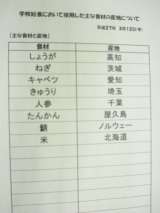 学校給食において使用した主な食材の産地について
平成27年 3月12日(木)
(主な食材と産地)
食材 産地
しょうが 高知
ねぎ 茨城
キャベツ 愛知
きゅうり 埼玉
人参 千葉
たんかん 屋久島
鯖 ノルウェー
米 北海道